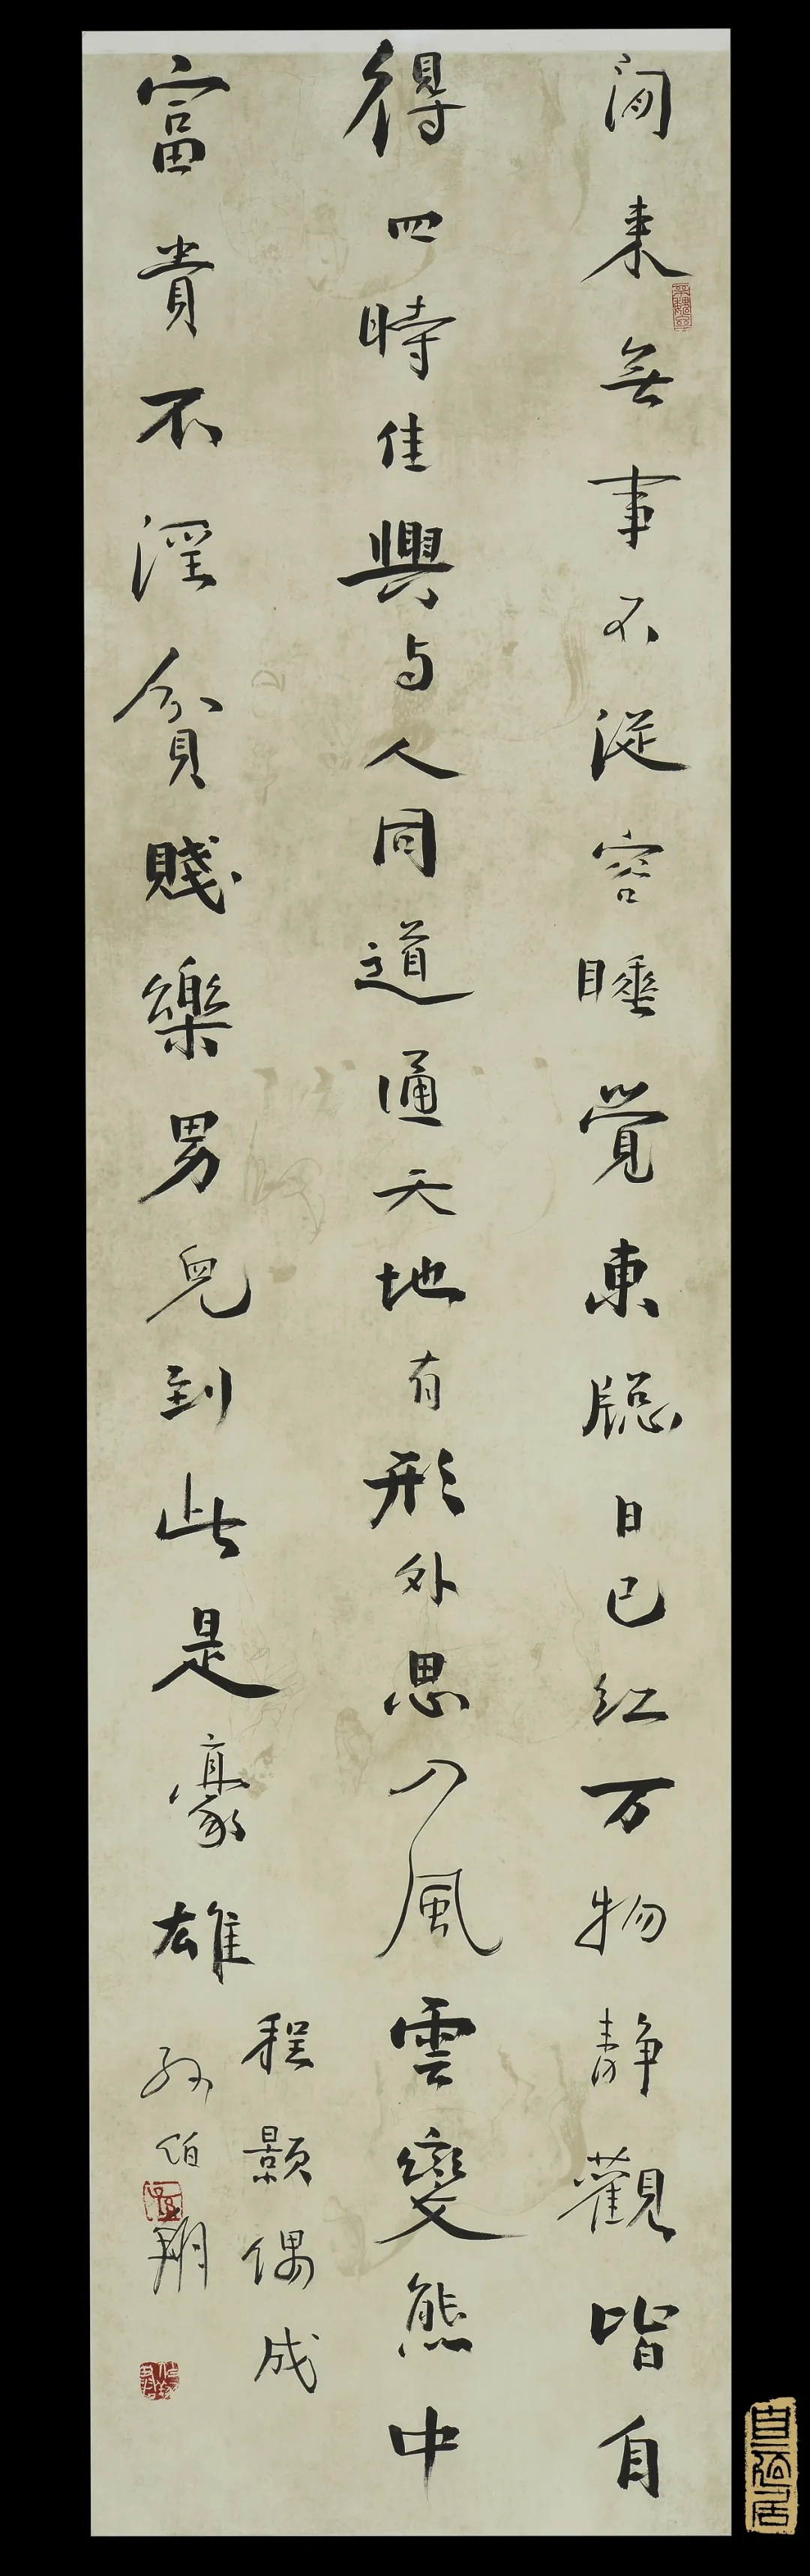 闲来无事不從容睡覺東牕日已红万物静觀皆自
得四時佳興与人同道通天地有形外思入風雲變態中
富貴不淫貧賤樂男兒到此是豪雄
程顥偶成
孫伯翔